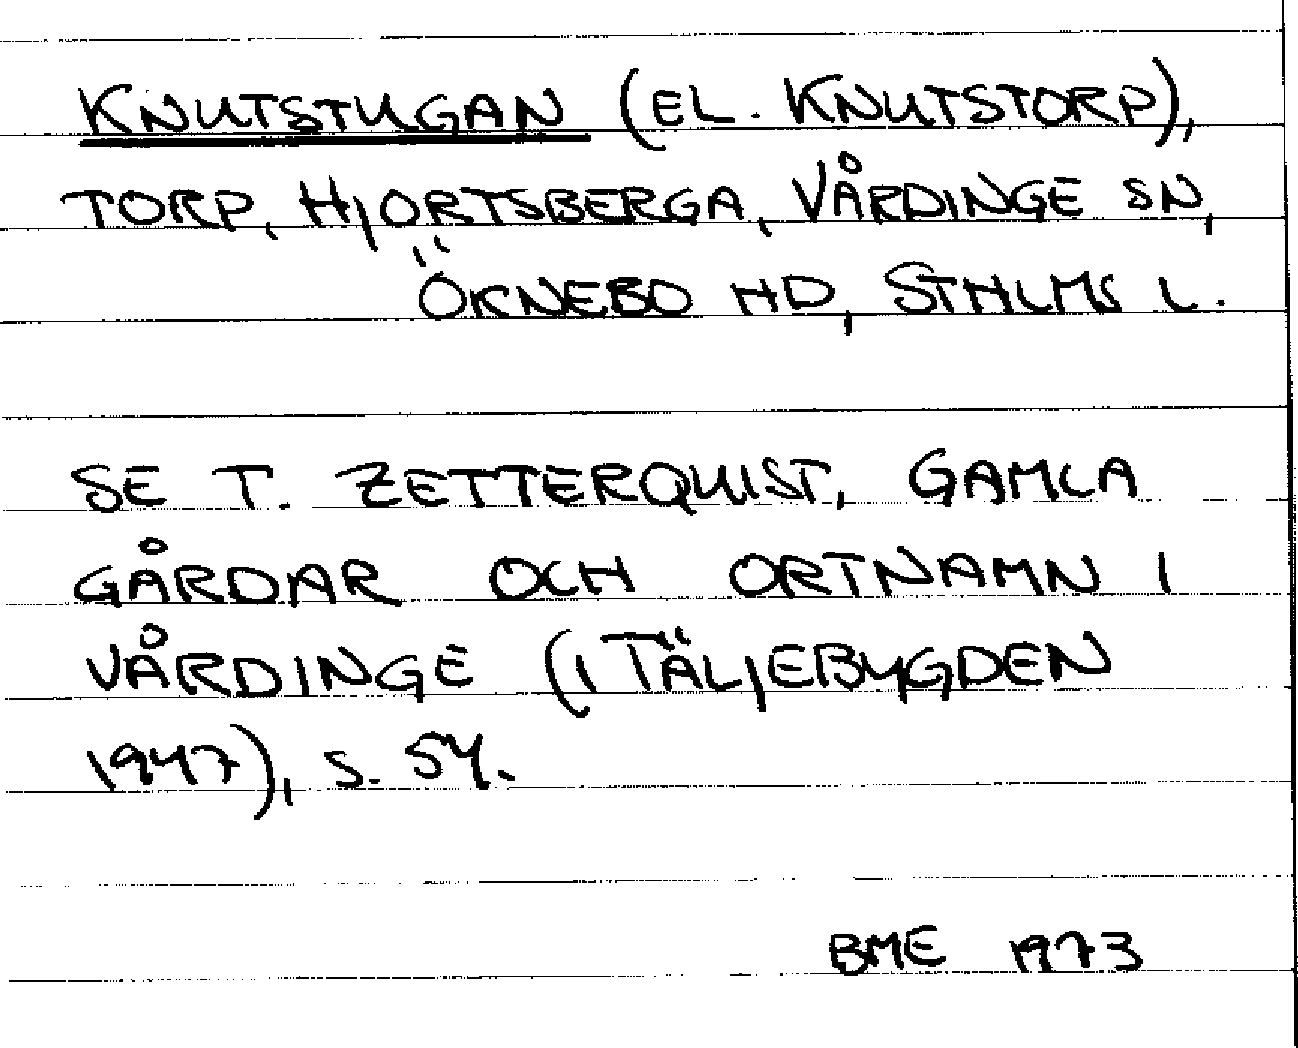 KNUTSTUGAN (EL. KNUTSTORP),
TORP, HJORTSBERGA, VÅRDINGE SN,
ÖKNEBO HD, STHLMS L.
SE T. ZETTERQUIST, GAMLA
GÅRDAR OCH ORTNAMN I
VÅRDINGE (I TÄLJEBYGDEN
1947), S. 54.
BME 1973